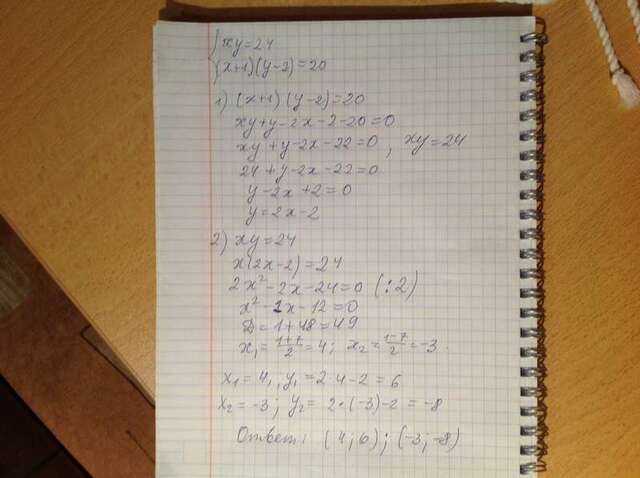 xy=24
(x+1)(y-2)=20
1) (x+1)(y-2)=20
xy+y-2x-2-20=0
xy+y-2x-22=0 ; xy=24
24+y-2x-22=0
y-2x+2=0
y=2x-2
2) xy=24
x(2x-2)=24
2x²-2x-24=0 (:2)
x²-x-12=0
D=1+48=49
x₁=(1+7)/2=4; x₂=(1-7)/2=-3
x₁=4; y₁=2·4-2=6
x₂=-3; y₂=2·(-3)-2=-8
Ответ: (4;6); (-3;-8)